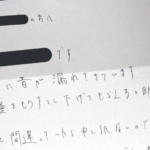 の方へ
です。
に音が漏れてきています。
量をもう少し下げてもらえると助
に間違っていたら申し訳ないので